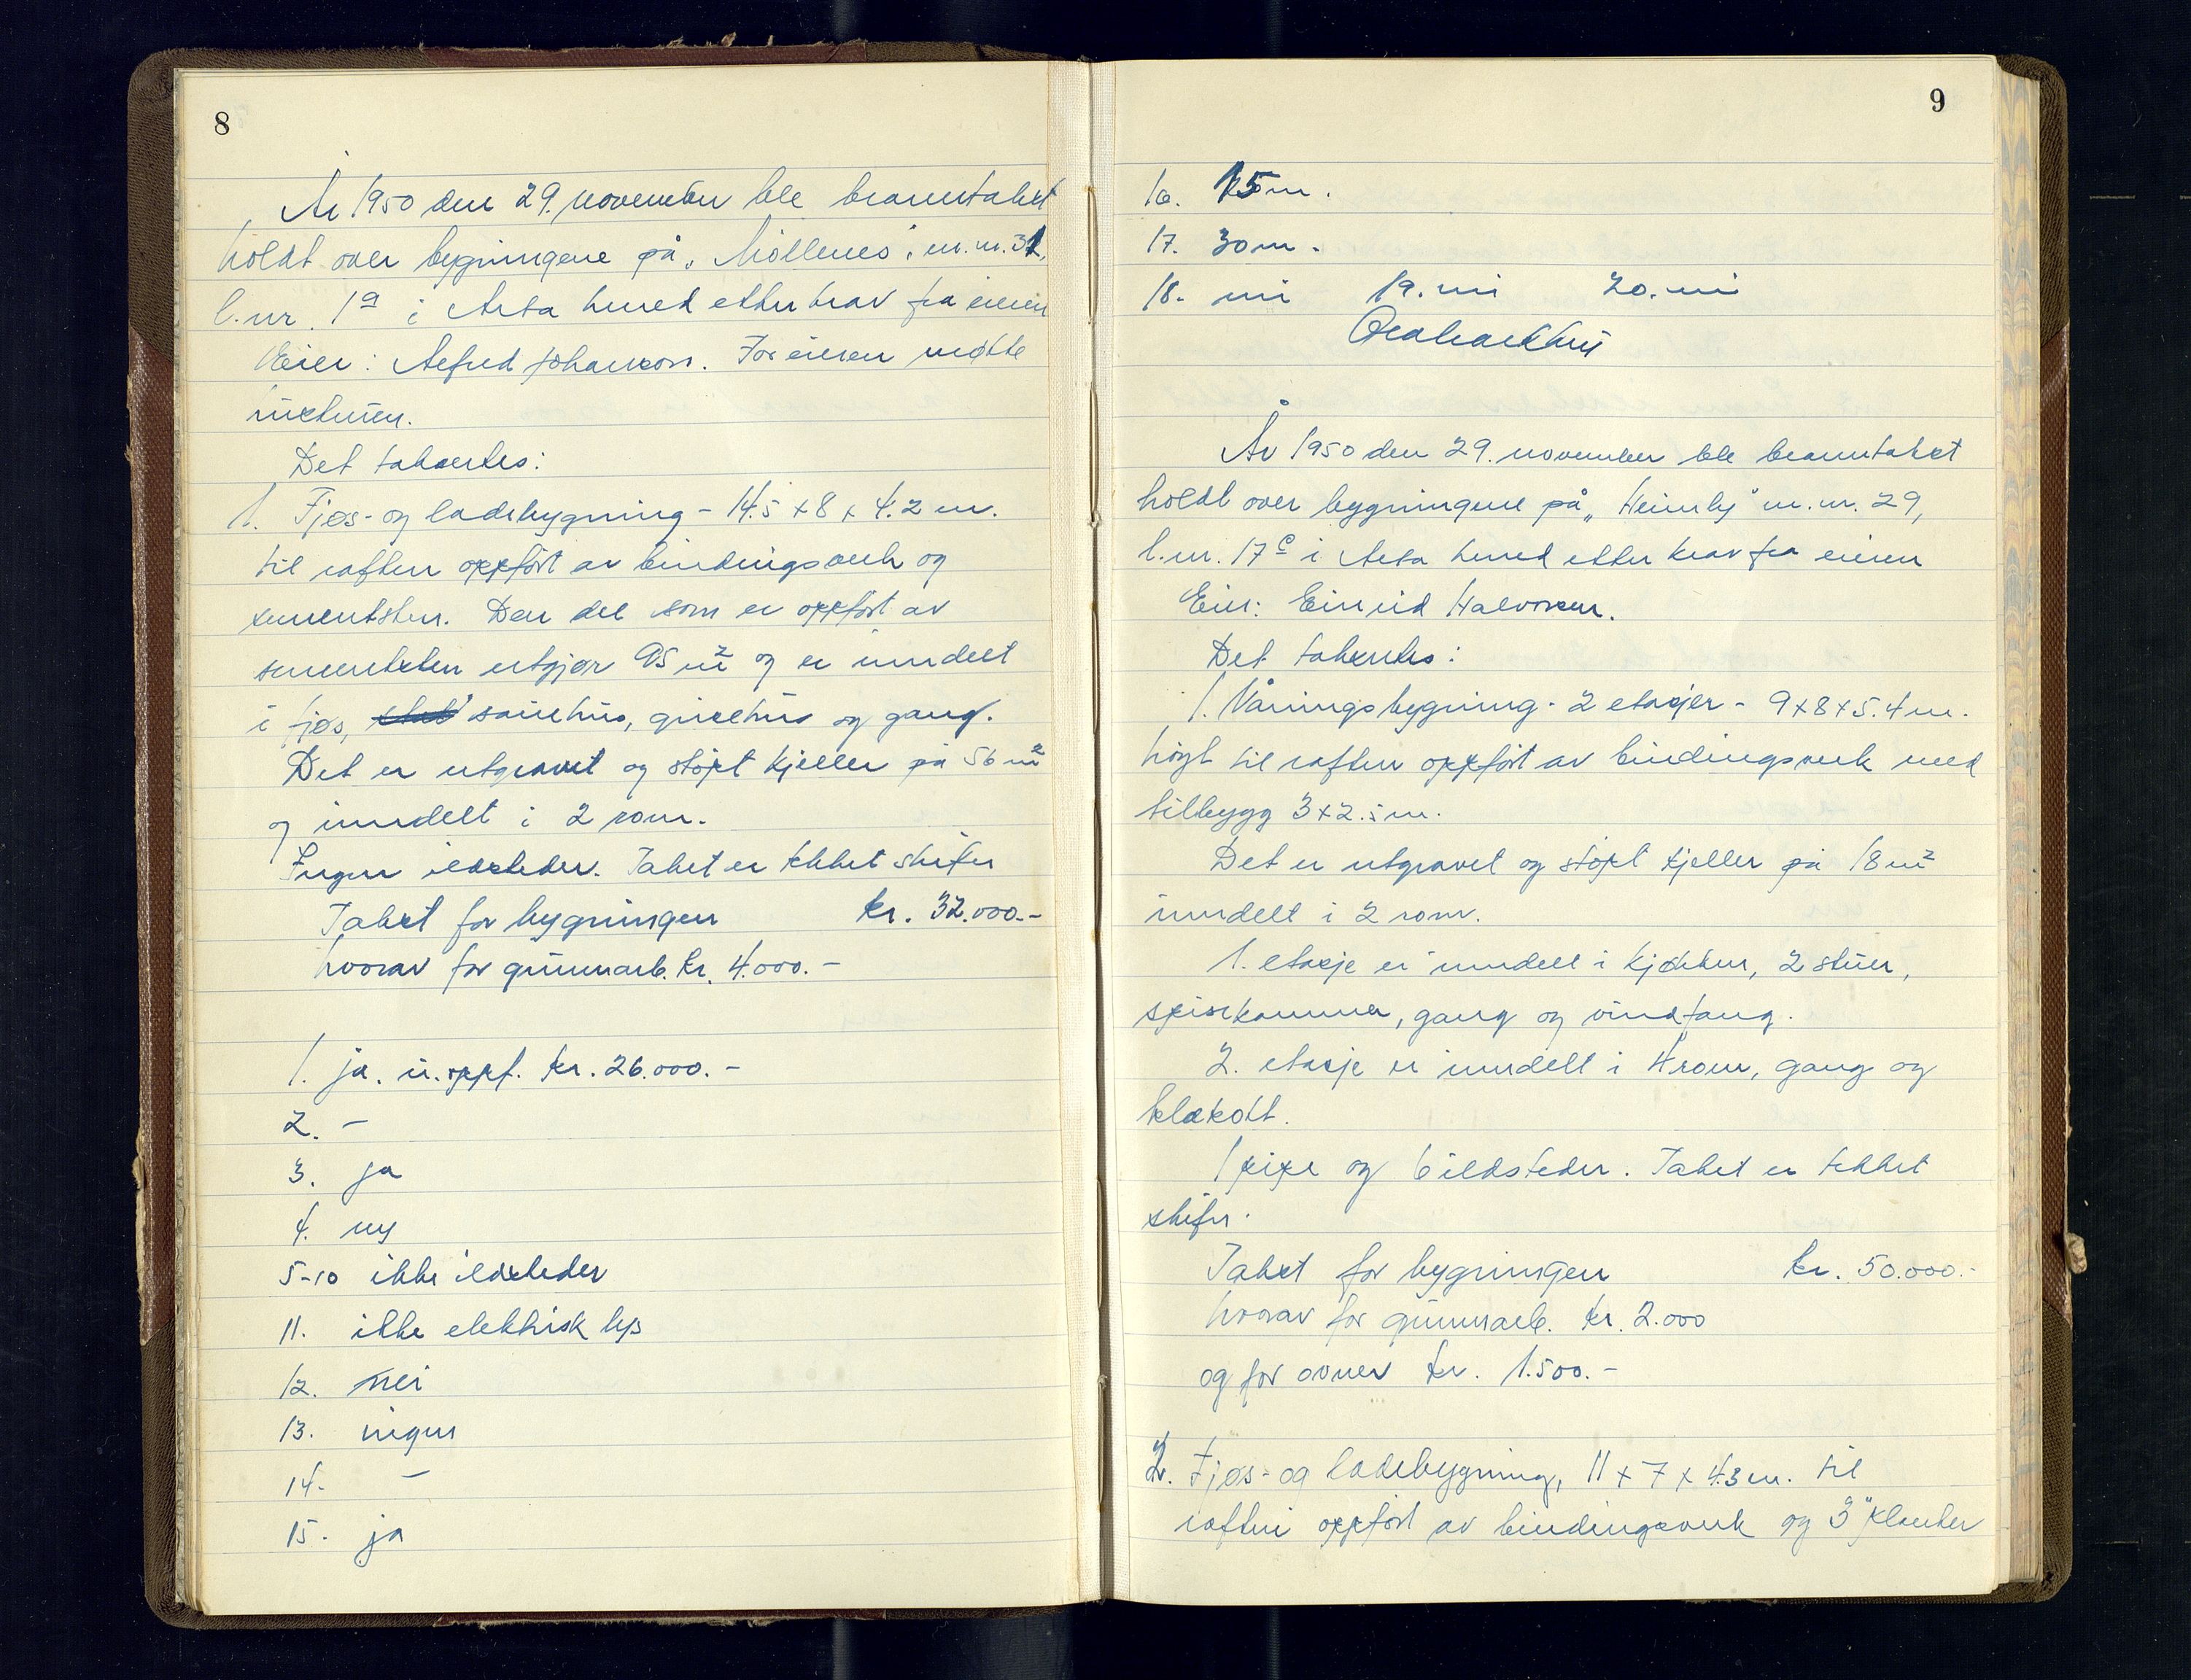 8
År 1950 den 29. november ble branntakst
holdt over bygningene på „Mollenes", m.nr. 31,
l.nr. 1a i Alta herred etter krav fra eieren
Eier: Alfred Johansen. For eieren møtte
sisterien.
Det takseres:
1. Fjøs- og ladebygning - 14.5 x 8 x 4.2 m.
til raften oppført av bindingsverk og
sementsten. Den del som er oppført av
sementsten utgjør 95 m2 og er inndelt
i fjøs, sauehus, grisehus og gang.
Det er utgravet og støpt kjeller på 56 m2
og inndelt i 2 rom.
Ingen ildsteder. Taket er tekket skifer
Takst for bygningen kr. 32.000.-
hvorav for grunnarb. kr. 4.000.-
1. ja. u.oppf. kr. 26.000.-
2. -
3. ja
4. ny
5-10 ikke ildsteder
11. ikke elektrisk lys
12. nei
13. ingen
14. -
15. ja
9
16. 15 m.
17. 30 m.
18. nei 19. nei 20. nei
År 1950 den 29. november ble branntakst
holdt over bygningene på „Heimly" m.nr. 29,
l.nr. 17c i Alta herred etter krav fra eieren
Eier: Einrid Halvorsen.
Det takseres:
1. Våningsbygning - 2 etasjer - 9 x 8 x 5.4 m.
høgt til raften oppført av bindingsverk med
tilbygg 3 x 2.5 m.
Det er utgravet og støpt kjeller på 18 m2
inndelt i 2 rom.
1. etasje er inndelt i kjøkken, 2 stuer,
spisekammer, gang og vindfang.
2. etasje er inndelt i 4 rom, gang og
kleskott.
1 pipe og 6 ildsteder. Taket er tekket
skifer.
Takst for bygningen kr. 50.000.-
hvorav for grunnarb. kr. 2.000
og for ovner kr. 1.500.-
2. Fjøs- og ladebygning, 11 x 7 x 4.3 m. til
raften oppført av bindingsverk og 3" planker